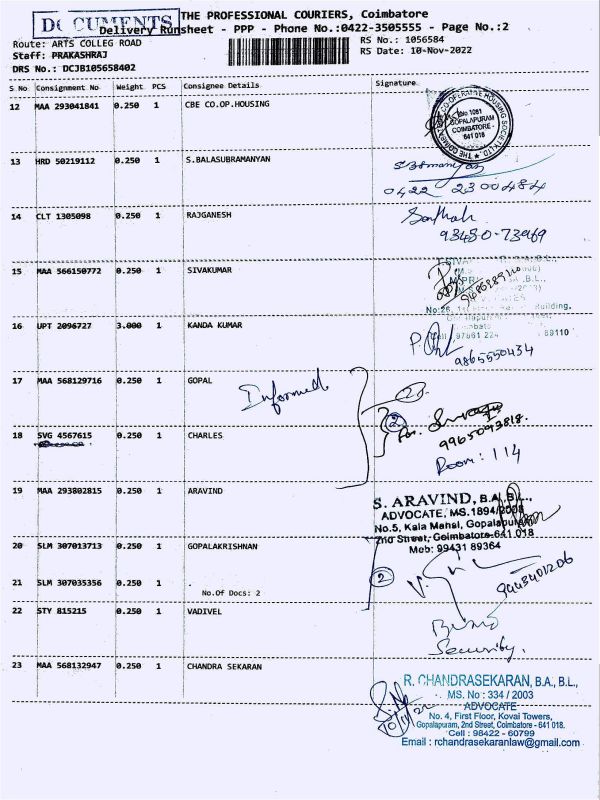 DOCUMENTS
THE PROFESSIONAL COURIERS, Coimbatore
Delivery Runsheet - PPP - Phone No.:0422-3505555 - Page No.:2
Route: ARTS COLLEG ROAD
RS No.: 1056584
Staff: PRAKASHRAJ
RS Date: 10-Nov-2022
DRS No.: DCJB105658402
S No Consignment No Weight PCS Consignee Details Signature
12 MAA 293041841 0.250 1 CBE CO.OP.HOUSING
No 1081
GOPALAPURAM
COIMBATORE -
641 018
13 HRD 50219112 0.250 1 S.BALASUBRAMANYAN
0422 2300484
14 CLT 1305098 0.250 1 RAJGANESH
93450-73969
15 MAA 566150772 0.250 1 SIVAKUMAR
Building,
16 UPT 2096727 3.000 1 KANDA KUMAR
89110
9865550434
17 MAA 568129716 0.250 1 GOPAL
Informed
2
18 SVG 4567615 0.250 1 CHARLES
for
9965093818
Room: 114
19 MAA 293802815 0.250 1 ARAVIND
S. ARAVIND, B.A.,B.L.,
ADVOCATE, MS.1894/2008
No.5, Kala Mahal, Gopalapuram
2nd Street, Coimbatore-641 018
Mob: 99431 89364
20 SLM 307013713 0.250 1 GOPALAKRISHNAN
2
21 SLM 307035356 0.250 1 .
No.Of Docs: 2
9443401206
22 STY 815215 0.250 1 VADIVEL
Security.
23 MAA 568132947 0.250 1 CHANDRA SEKARAN
R. CHANDRASEKARAN, B.A., B.L.,
MS. No : 334 / 2003
ADVOCATE
No. 4, First Floor, Kovai Towers,
Gopalapuram, 2nd Street, Coimbatore - 641 018.
Cell : 98422 - 60799
Email : rchandrasekaranlaw@gmail.com
10/11/22